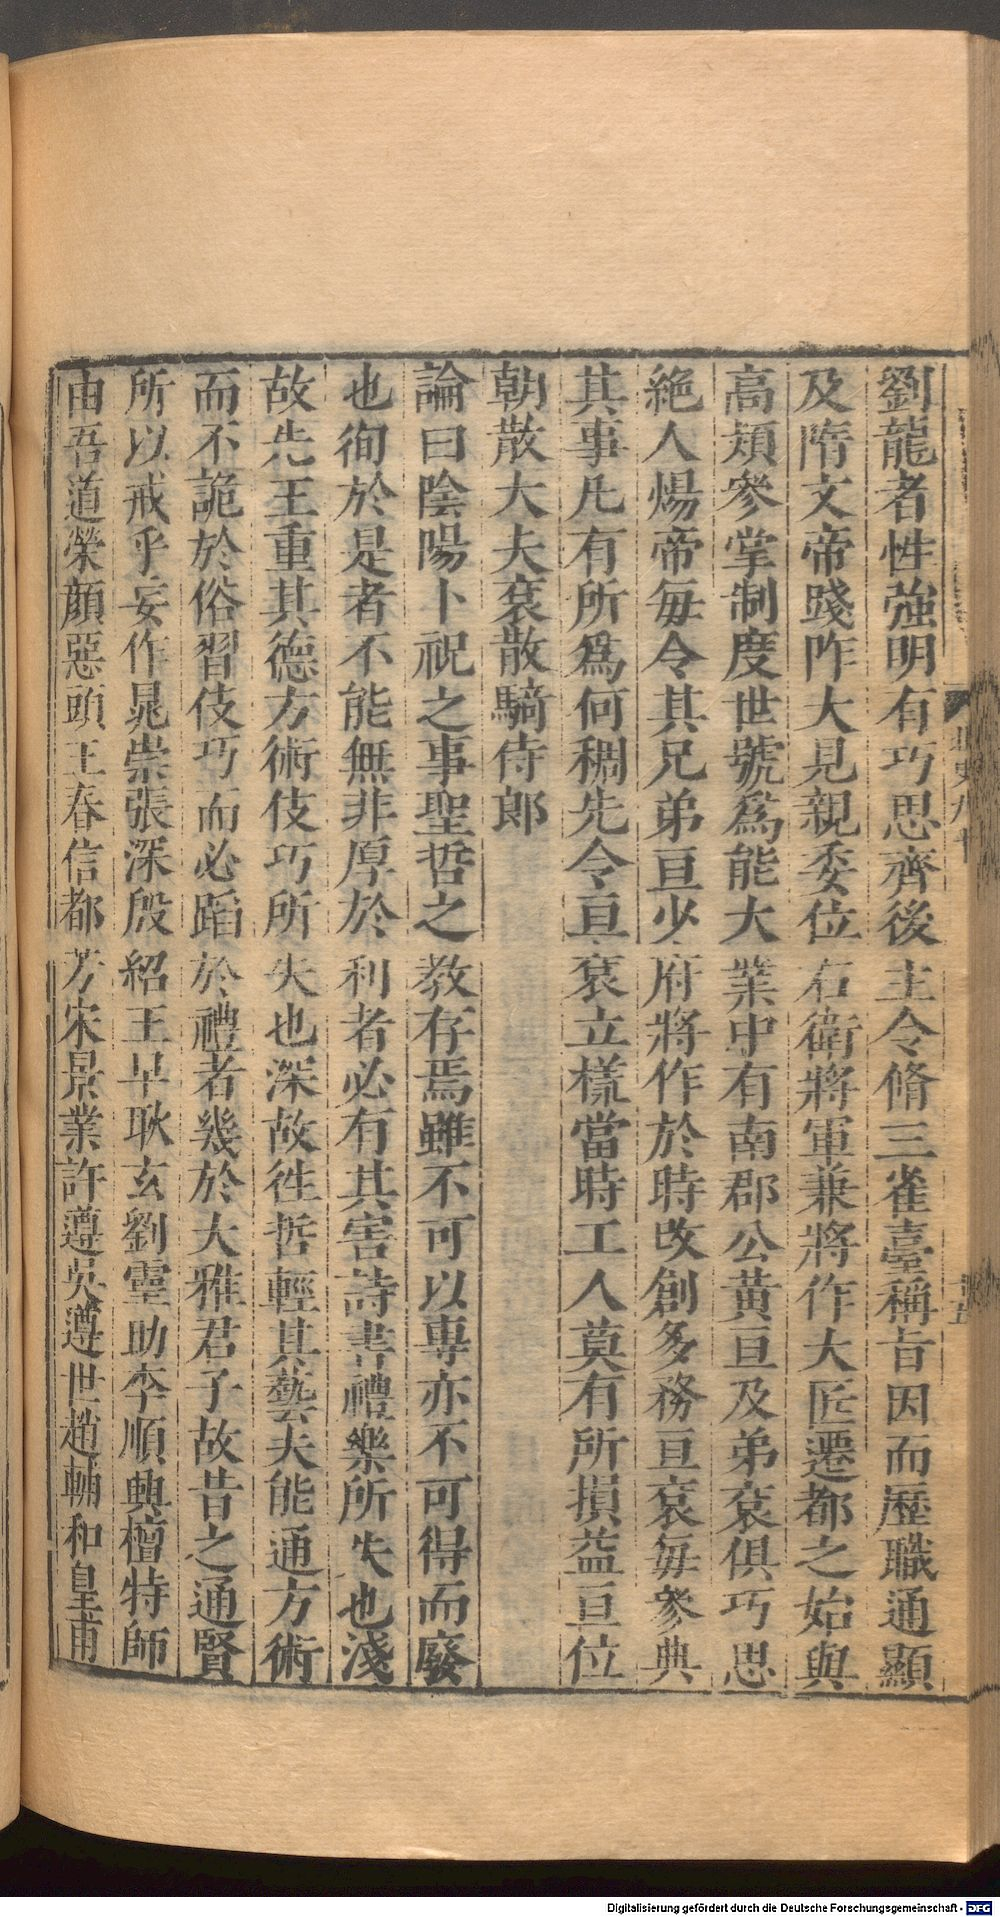 劉龍者性強明有巧思齊後主令脩三雀臺稱旨因而歷職通顯
及隋文帝踐阼大見親委位右衛將軍兼將作大匠遷都之始與
高熲參掌制度世號爲能大業中有南郡公黄亘及弟衮俱巧思
絶人煬帝每令其兄弟亘少府將作於時改創多務亘衮每參典
其事凡有所爲何稠先令亘衮立樣當時工人莫有所損益亘位
朝散大夫衮散騎侍郎
論曰陰陽卜祝之事聖哲之教存焉雖不可以專亦不可得而廢
也徇於是者不能無非厚於利者必有其害詩書禮樂所失也淺
故先王重其德方術伎巧所失也深故徃哲輕其藝夫能通方術
而不詭於俗習伎巧而必蹈於禮者幾於大雅君子故昔之通賢
所以戒乎妄作晁崇張深殷紹王早耿玄劉靈助李順興檀特師
由吾道榮顔惡頭王春信都芳宋景業許遵吳遵世趙輔和皇甫
北史九十
十五
Digitalisierung gefördert durch die Deutsche Forschungsgemeinschaft - DFG